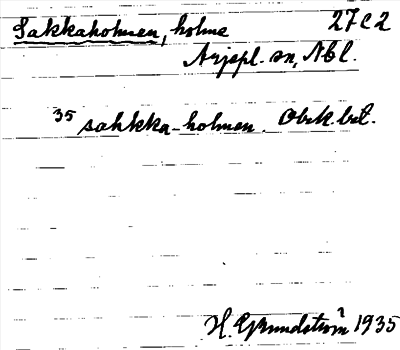 Sakkaholmen, holme 27c2
Arjepl. sn, Nbl.
35 sahkka-holmen. Obek. bet.
H. Grundström 1935